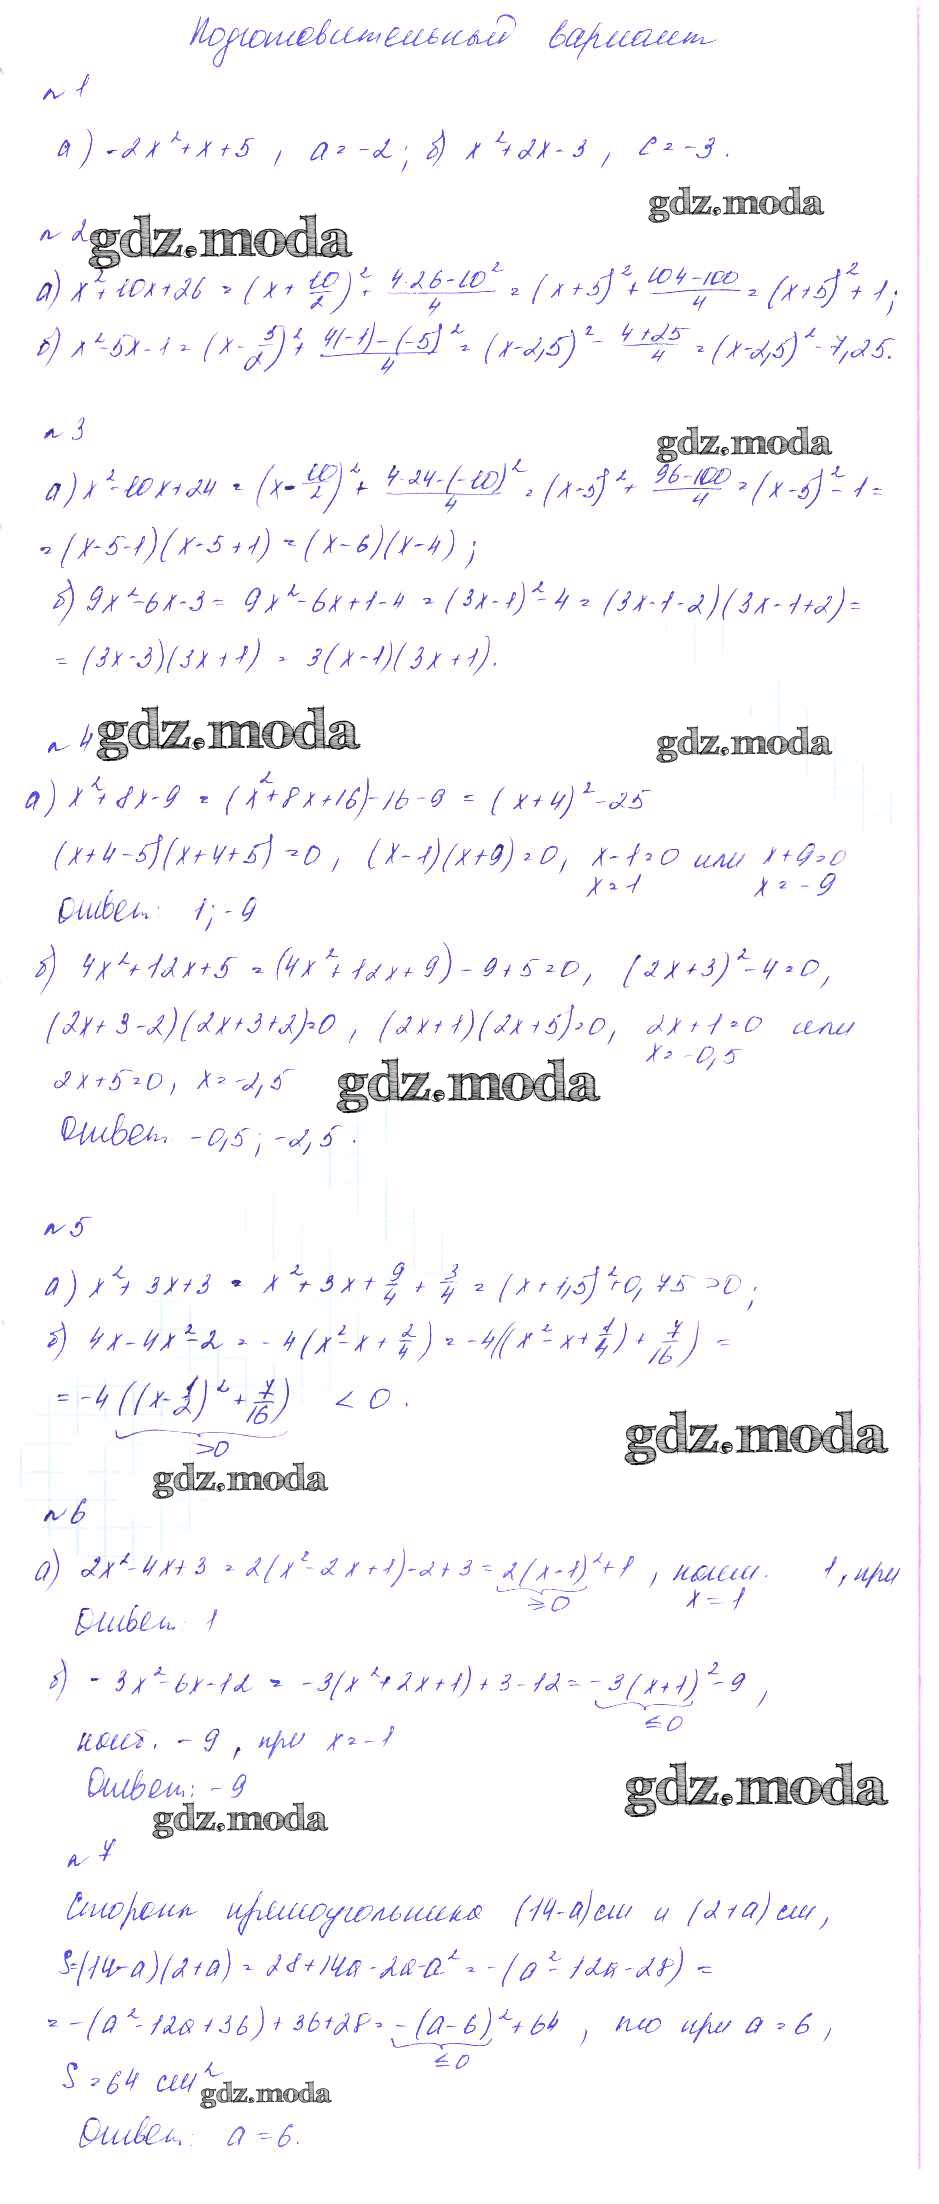 Подготовительный вариант
n 1
а) -2x²+x+5, a=-2; б) x²+2x-3, c=-3.
gdz.moda
n 2
gdz.moda
а) x²+10x+26 = (x+10/2)²+ (4·26-10²)/4 = (x+5)²+ (104-100)/4 = (x+5)²+1;
б) x²-5x-1 = (x-5/2)²+ (4(-1)-(-5)²)/4 = (x-2,5)² - (4+25)/4 = (x-2,5)²-7,25.
n 3
gdz.moda
а) x²-10x+24 = (x-10/2)²+ (4·24-(-10)²)/4 = (x-5)²+ (96-100)/4 = (x-5)²-1=
= (x-5-1)(x-5+1) = (x-6)(x-4);
б) 9x²-6x-3 = 9x²-6x+1-4 = (3x-1)²-4 = (3x-1-2)(3x-1+2)=
= (3x-3)(3x+1) = 3(x-1)(3x+1).
n 4
gdz.moda
gdz.moda
а) x²+8x-9 = (x²+8x+16)-16-9 = (x+4)²-25
(x+4-5)(x+4+5)=0, (x-1)(x+9)=0, x-1=0 или x+9=0
x=1 x=-9
Ответ: 1; -9
б) 4x²+12x+5 = (4x²+12x+9)-9+5=0, (2x+3)²-4=0,
(2x+3-2)(2x+3+2)=0, (2x+1)(2x+5)=0, 2x+1=0 или
x=-0,5
2x+5=0, x=-2,5
gdz.moda
Ответ: -0,5; -2,5.
n 5
а) x²+3x+3 = x²+3x+9/4+3/4 = (x+1,5)²+0,75 >0;
б) 4x-4x²-2 = -4(x²-x+2/4) = -4((x²-x+1/4)+7/16) =
= -4((x-1/2)²+7/16) <0.
>0
gdz.moda
gdz.moda
n 6
а) 2x²-4x+3 = 2(x²-2x+1)-2+3 = 2(x-1)²+1, наим. 1, при
≥0 x=1
Ответ: 1
б) -3x²-6x-12 = -3(x²+2x+1)+3-12 = -3(x+1)²-9,
≤0
наиб. -9, при x=-1
Ответ: -9
gdz.moda
gdz.moda
n 7
Стороны прямоугольника (14-a)см и (2+a)см,
S=(14-a)(2+a) = 28+14a-2a-a² = -(a²-12a-28) =
= -(a²-12a+36)+36+28 = -(a-6)²+64, то при a=6,
≤0
S=64 см²
gdz.moda
Ответ: a=6.